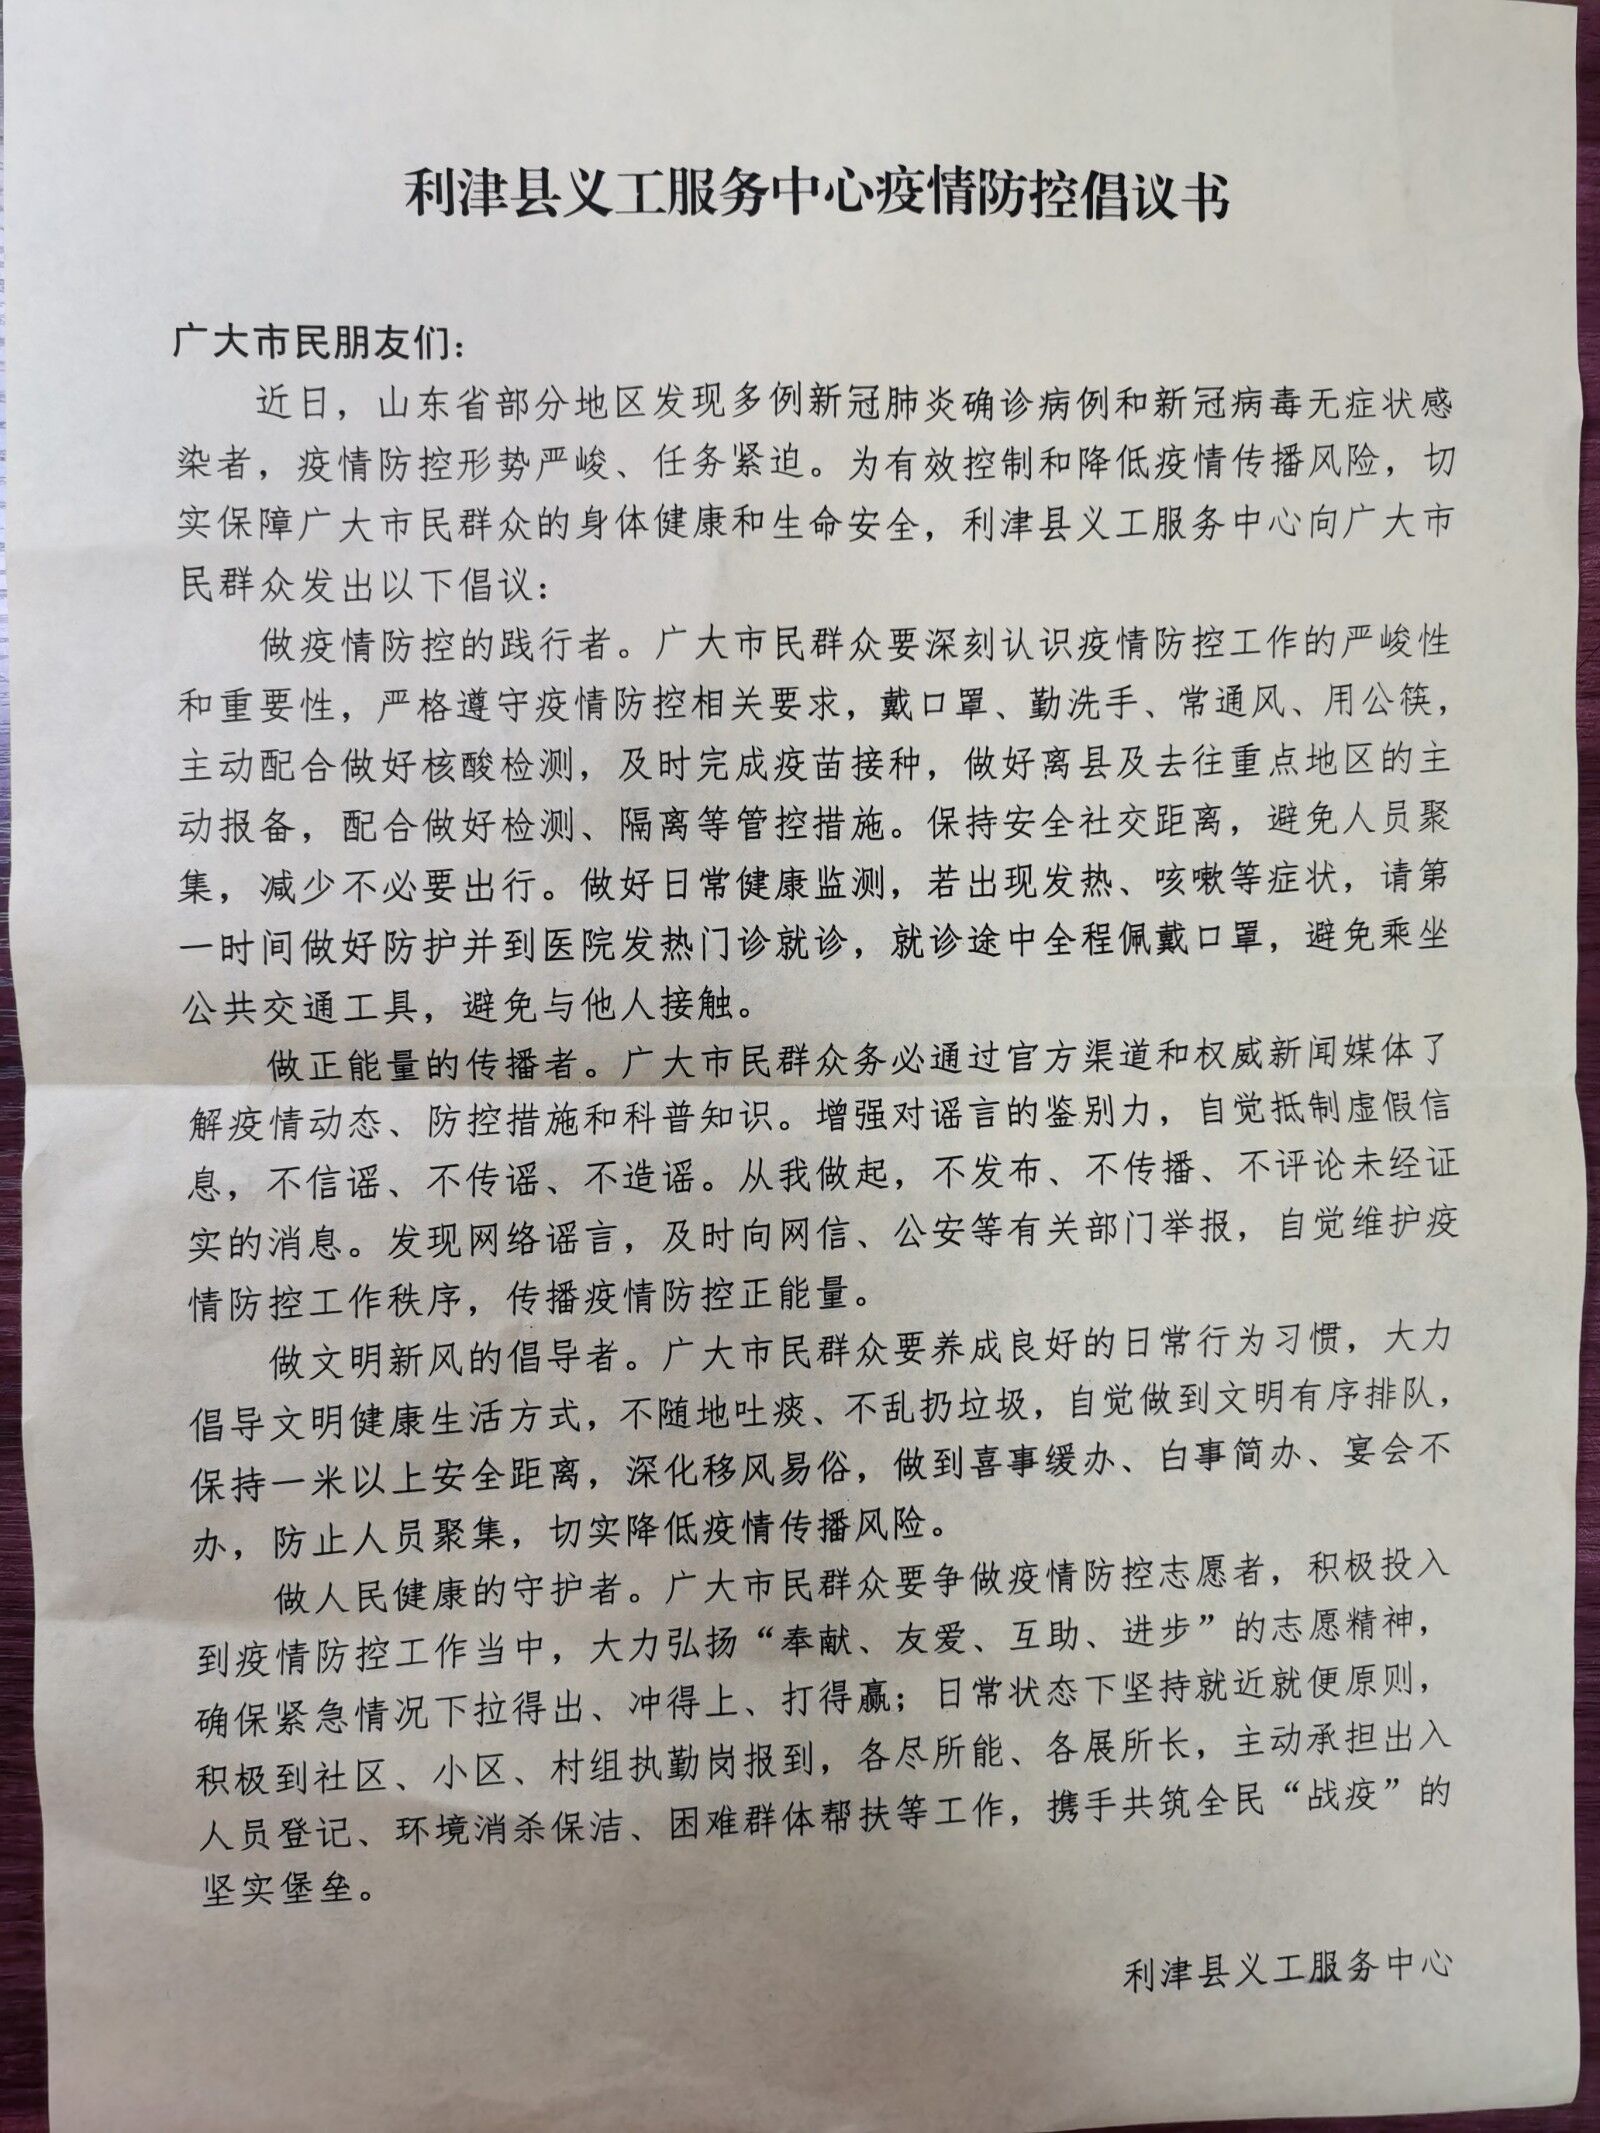 利津县义工服务中心疫情防控倡议书
广大市民朋友们：
近日，山东省部分地区发现多例新冠肺炎确诊病例和新冠病毒无症状感
染者，疫情防控形势严峻、任务紧迫。为有效控制和降低疫情传播风险，切
实保障广大市民群众的身体健康和生命安全，利津县义工服务中心向广大市
民群众发出以下倡议：
做疫情防控的践行者。广大市民群众要深刻认识疫情防控工作的严峻性
和重要性，严格遵守疫情防控相关要求，戴口罩、勤洗手、常通风、用公筷，
主动配合做好核酸检测，及时完成疫苗接种，做好离县及去往重点地区的主
动报备，配合做好检测、隔离等管控措施。保持安全社交距离，避免人员聚
集，减少不必要出行。做好日常健康监测，若出现发热、咳嗽等症状，请第
一时间做好防护并到医院发热门诊就诊，就诊途中全程佩戴口罩，避免乘坐
公共交通工具，避免与他人接触。
做正能量的传播者。广大市民群众务必通过官方渠道和权威新闻媒体了
解疫情动态、防控措施和科普知识。增强对谣言的鉴别力，自觉抵制虚假信
息，不信谣、不传谣、不造谣。从我做起，不发布、不传播、不评论未经证
实的消息。发现网络谣言，及时向网信、公安等有关部门举报，自觉维护疫
情防控工作秩序，传播疫情防控正能量。
做文明新风的倡导者。广大市民群众要养成良好的日常行为习惯，大力
倡导文明健康生活方式，不随地吐痰、不乱扔垃圾，自觉做到文明有序排队，
保持一米以上安全距离，深化移风易俗，做到喜事缓办、白事简办、宴会不
办，防止人员聚集，切实降低疫情传播风险。
做人民健康的守护者。广大市民群众要争做疫情防控志愿者，积极投入
到疫情防控工作当中，大力弘扬“奉献、友爱、互助、进步”的志愿精神，
确保紧急情况下拉得出、冲得上、打得赢；日常状态下坚持就近就便原则，
积极到社区、小区、村组执勤岗报到，各尽所能、各展所长，主动承担出入
人员登记、环境消杀保洁、困难群体帮扶等工作，携手共筑全民“战疫”的
坚实堡垒。
利津县义工服务中心